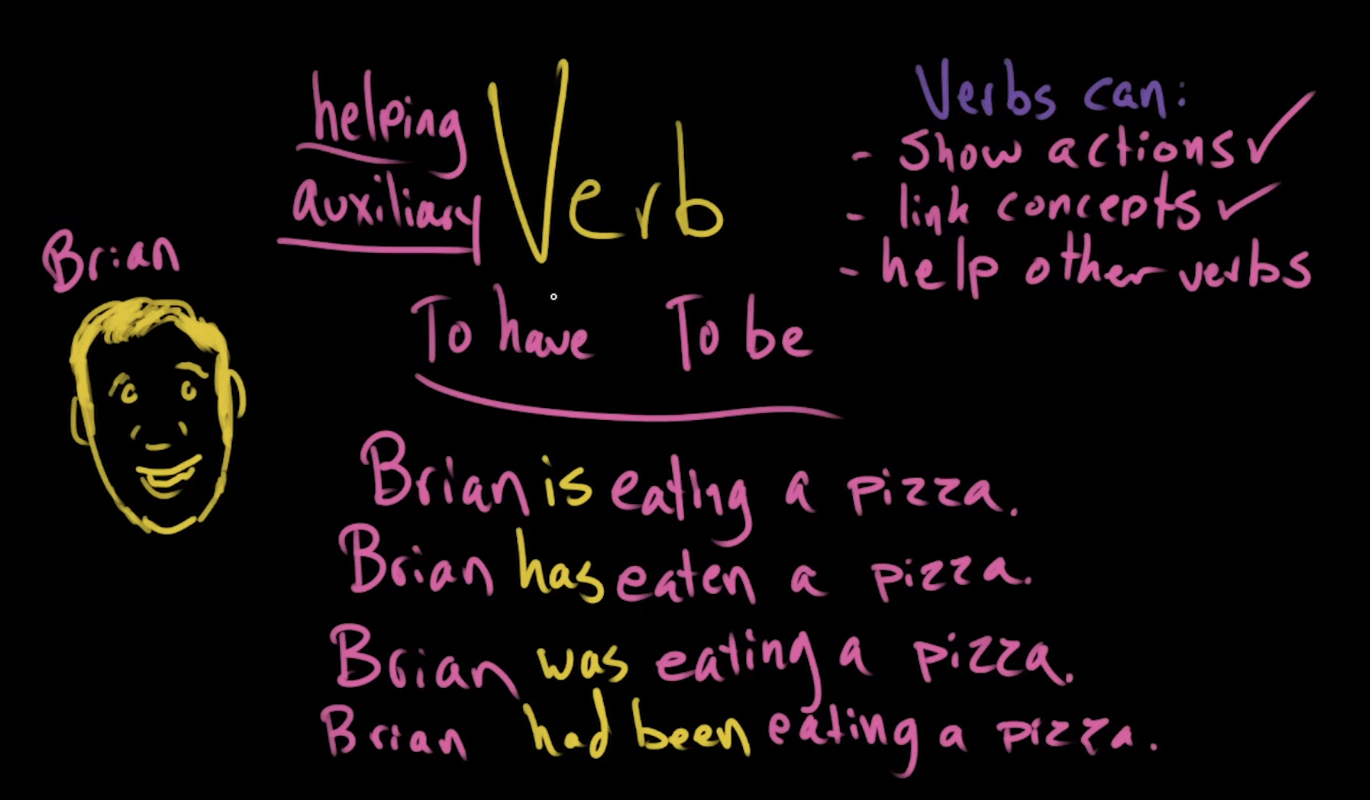 helping
auxiliary
Verb
Verbs can:
- show actions ✓
- link concepts ✓
- help other verbs
Brian
To have To be
Brian is eating a pizza.
Brian has eaten a pizza.
Brian was eating a pizza.
Brian had been eating a pizza.